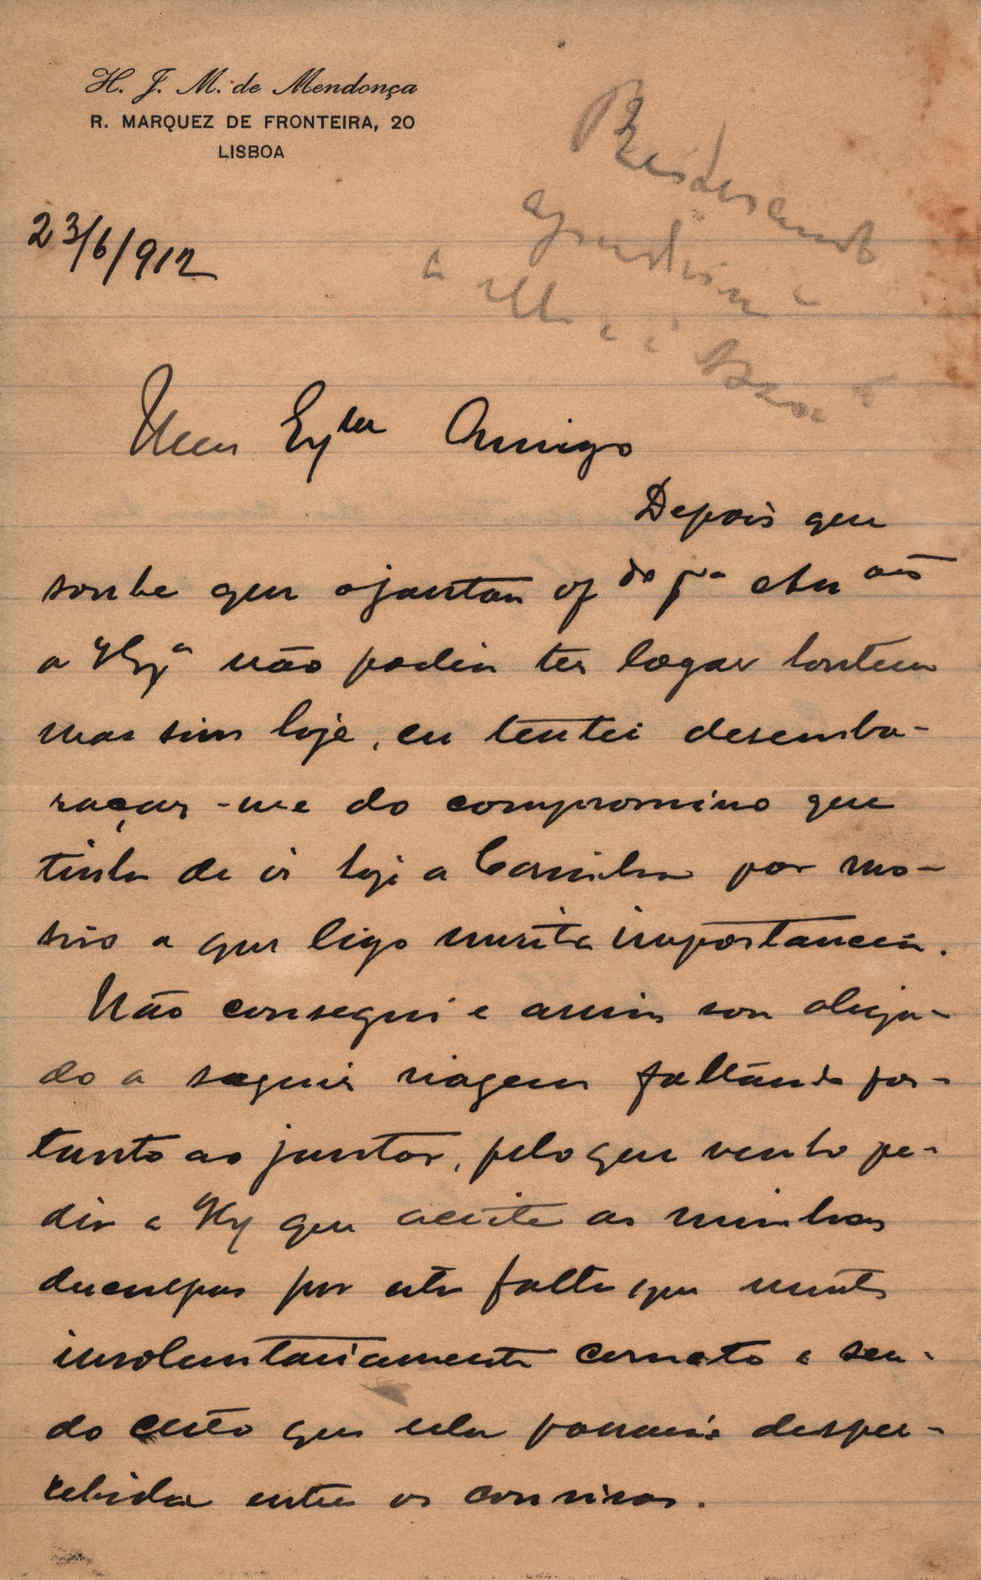 H. J. M. de Mendonça
R. MARQUEZ DE FRONTEIRA, 20
LISBOA
23/6/912
Meu Exmo Amigo
Depois que
soube que o jantar of do pa
a VExa não podia ter logar hontem
mas sim hoje, eu tentei desemba-
raçar-me do compromisso que
tinha de ir hoje a Coruche por
a que ligo muita importancia.
Não consegui e assim sou obriga-
do a seguir viagem faltando por-
tanto ao jantar, pelo que venho pe-
dir a VEx que aceite as minhas
desculpas por esta falta que muito
involuntariamente cometo e sen-
do certo que ela passará desper-
cebida entre os convivas.